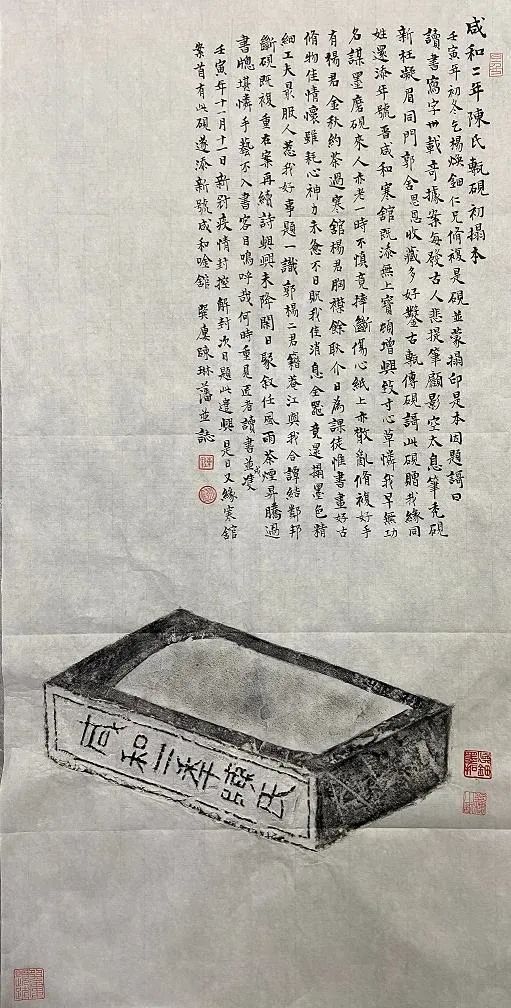 咸和二年陳氏甎硯初搨本
壬寅年初冬乞楊煥鈿仁兄脩複是硯並蒙搨印是本因題謌曰
讀書寫字卅載奇據案每發古人悲提筆顧影空太息筆禿硯
新枉凝眉同門郭舍思恩收藏多好鑿古甎傳硯謌此硯贈我緣同
姓還添年號晉咸和寒館既添無上寶頓增興致寸心草憐我早無功
名謀墨磨硯來人亦老一時不慎竟摔斷傷心紙上亦散亂脩複好手
有楊君金秋約茶過寒館楊君胸襟餘耿介日為課徒惟書畫好古
脩物佳情懷雖耗心神力未怠不日貺我佳消息全器竟還搨墨色精
細工夫最服人惹我好事題一識郭楊二君籍菴江與我合譚結鄰邦
斷硯既複重在案再續詩興興未降閑日聚叙任風雨茶煙昇騰過
書牕堪憐手藝不入書客日嗚呼哉何時重見匠者讀書並雙成
壬寅年十一月十一日新冠疫情封控解封次日題此遣興是日又緣寒館
案首有此硯遂添新號咸和唫館 琳藩並誌
咸和二年陳氏